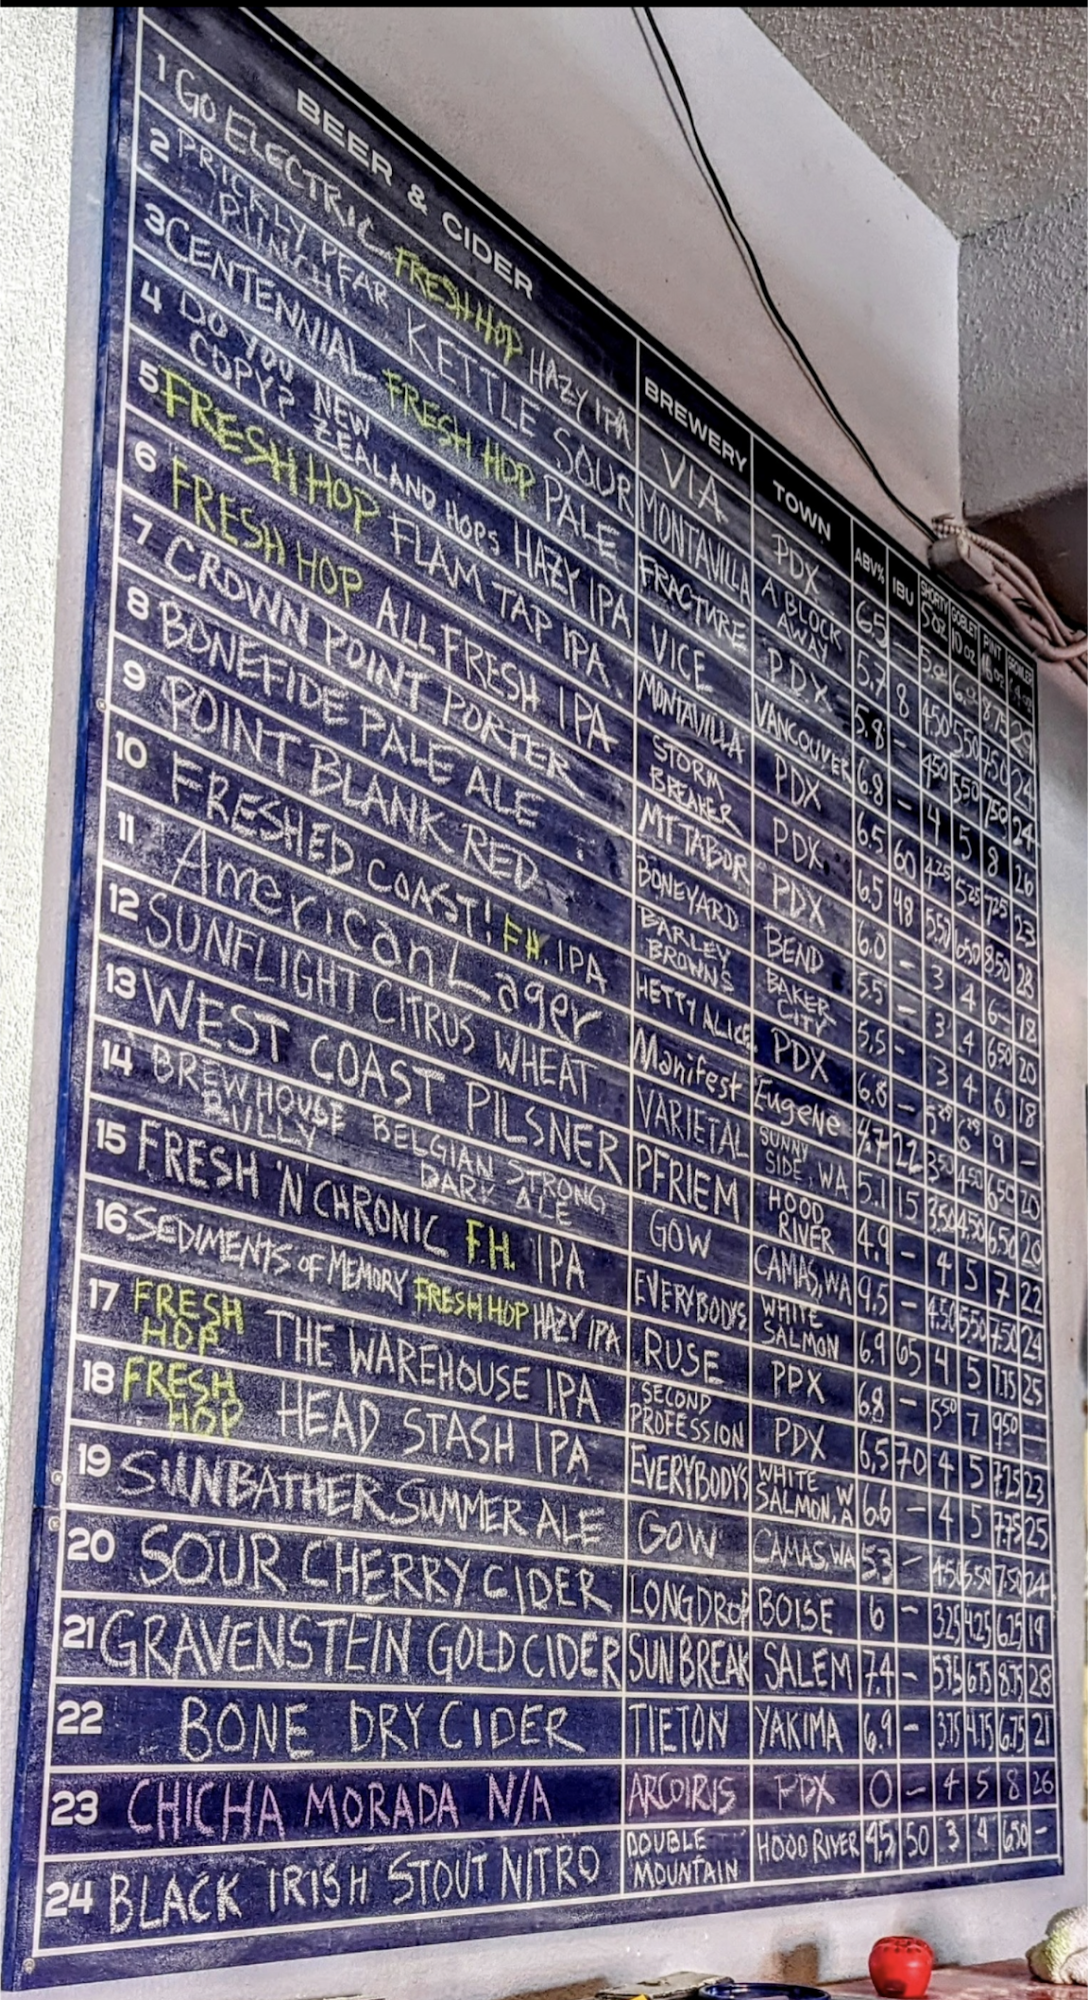 BEER & CIDER BREWERY TOWN ABV% IBU SHORTY 5 oz GOBLET 10 oz PINT 16 oz GROWLER 64 oz
1 GO ELECTRIC FRESH HOP HAZY IPA VIA PDX 6.5 - 5.25 6.25 8.75 29
2 PRICKLY PEAR PUNCH KETTLE SOUR MONTAVILLA A BLOCK AWAY 5.7 8 450 550 750 24
3 CENTENNIAL FRESH HOP PALE FRACTURE PDX 5.8 - 450 550 750 24
4 DO YOU COPY? NEW ZEALAND HOPS HAZY IPA VICE VANCOUVER 6.8 - 4 5 8 26
5 FRESH HOP FLAM TAP IPA MONTAVILLA PDX 6.5 60 425 525 725 23
6 FRESH HOP ALL FRESH IPA STORM BREAKER PDX 6.5 48 550 650 850 28
7 CROWN POINT PORTER MT TABOR PDX 6.0 - 3 4 6- 18
8 BONEFIDE PALE ALE BONEYARD BEND 5.5 - 3 4 650 20
9 POINT BLANK RED BARLEY BROWNS BAKER CITY 5.5 - 3 4 6 18
10 FRESHED COAST! F.H. IPA HETTY ALICE PDX 6.8 - 525 625 9 -
11 American Lager Manifest Eugene 4.7 22 350 450 650 20
12 SUNFLIGHT CITRUS WHEAT VARIETAL SUNNY SIDE, WA 5.1 15 350 450 6.50 20
13 WEST COAST PILSNER PFRIEM HOOD RIVER 4.9 - 4 5 7 22
14 BREWHOUSE BULLY BELGIAN STRONG DARK ALE GOW CAMAS, WA 9.5 - 4.50 550 7.50 24
15 FRESH 'N' CHRONIC F.H. IPA EVERYBODYS WHITE SALMON 6.9 65 4 5 7.75 25
16 SEDIMENTS OF MEMORY FRESH HOP HAZY IPA RUSE PDX 6.8 - 550 7 950 -
17 FRESH HOP THE WAREHOUSE IPA SECOND PROFESSION PDX 6.5 70 4 5 7.25 23
18 FRESH HOP HEAD STASH IPA EVERYBODYS WHITE SALMON, WA 6.6 - 4 5 7.75 25
19 SUNBATHER SUMMER ALE GOW CAMAS, WA 5.3 - 4.50 5.50 7.50 24
20 SOUR CHERRY CIDER LONGDROP BOISE 6 - 325 425 625 19
21 GRAVENSTEIN GOLD CIDER SUNBREAK SALEM 7.4 - 575 675 8.75 28
22 BONE DRY CIDER TIETON YAKIMA 6.9 - 3.75 4.75 6.75 21
23 CHICHA MORADA N/A ARCOIRIS PDX 0 - 4 5 8 26
24 BLACK IRISH STOUT NITRO DOUBLE MOUNTAIN HOOD RIVER 4.5 50 3 4 650 -